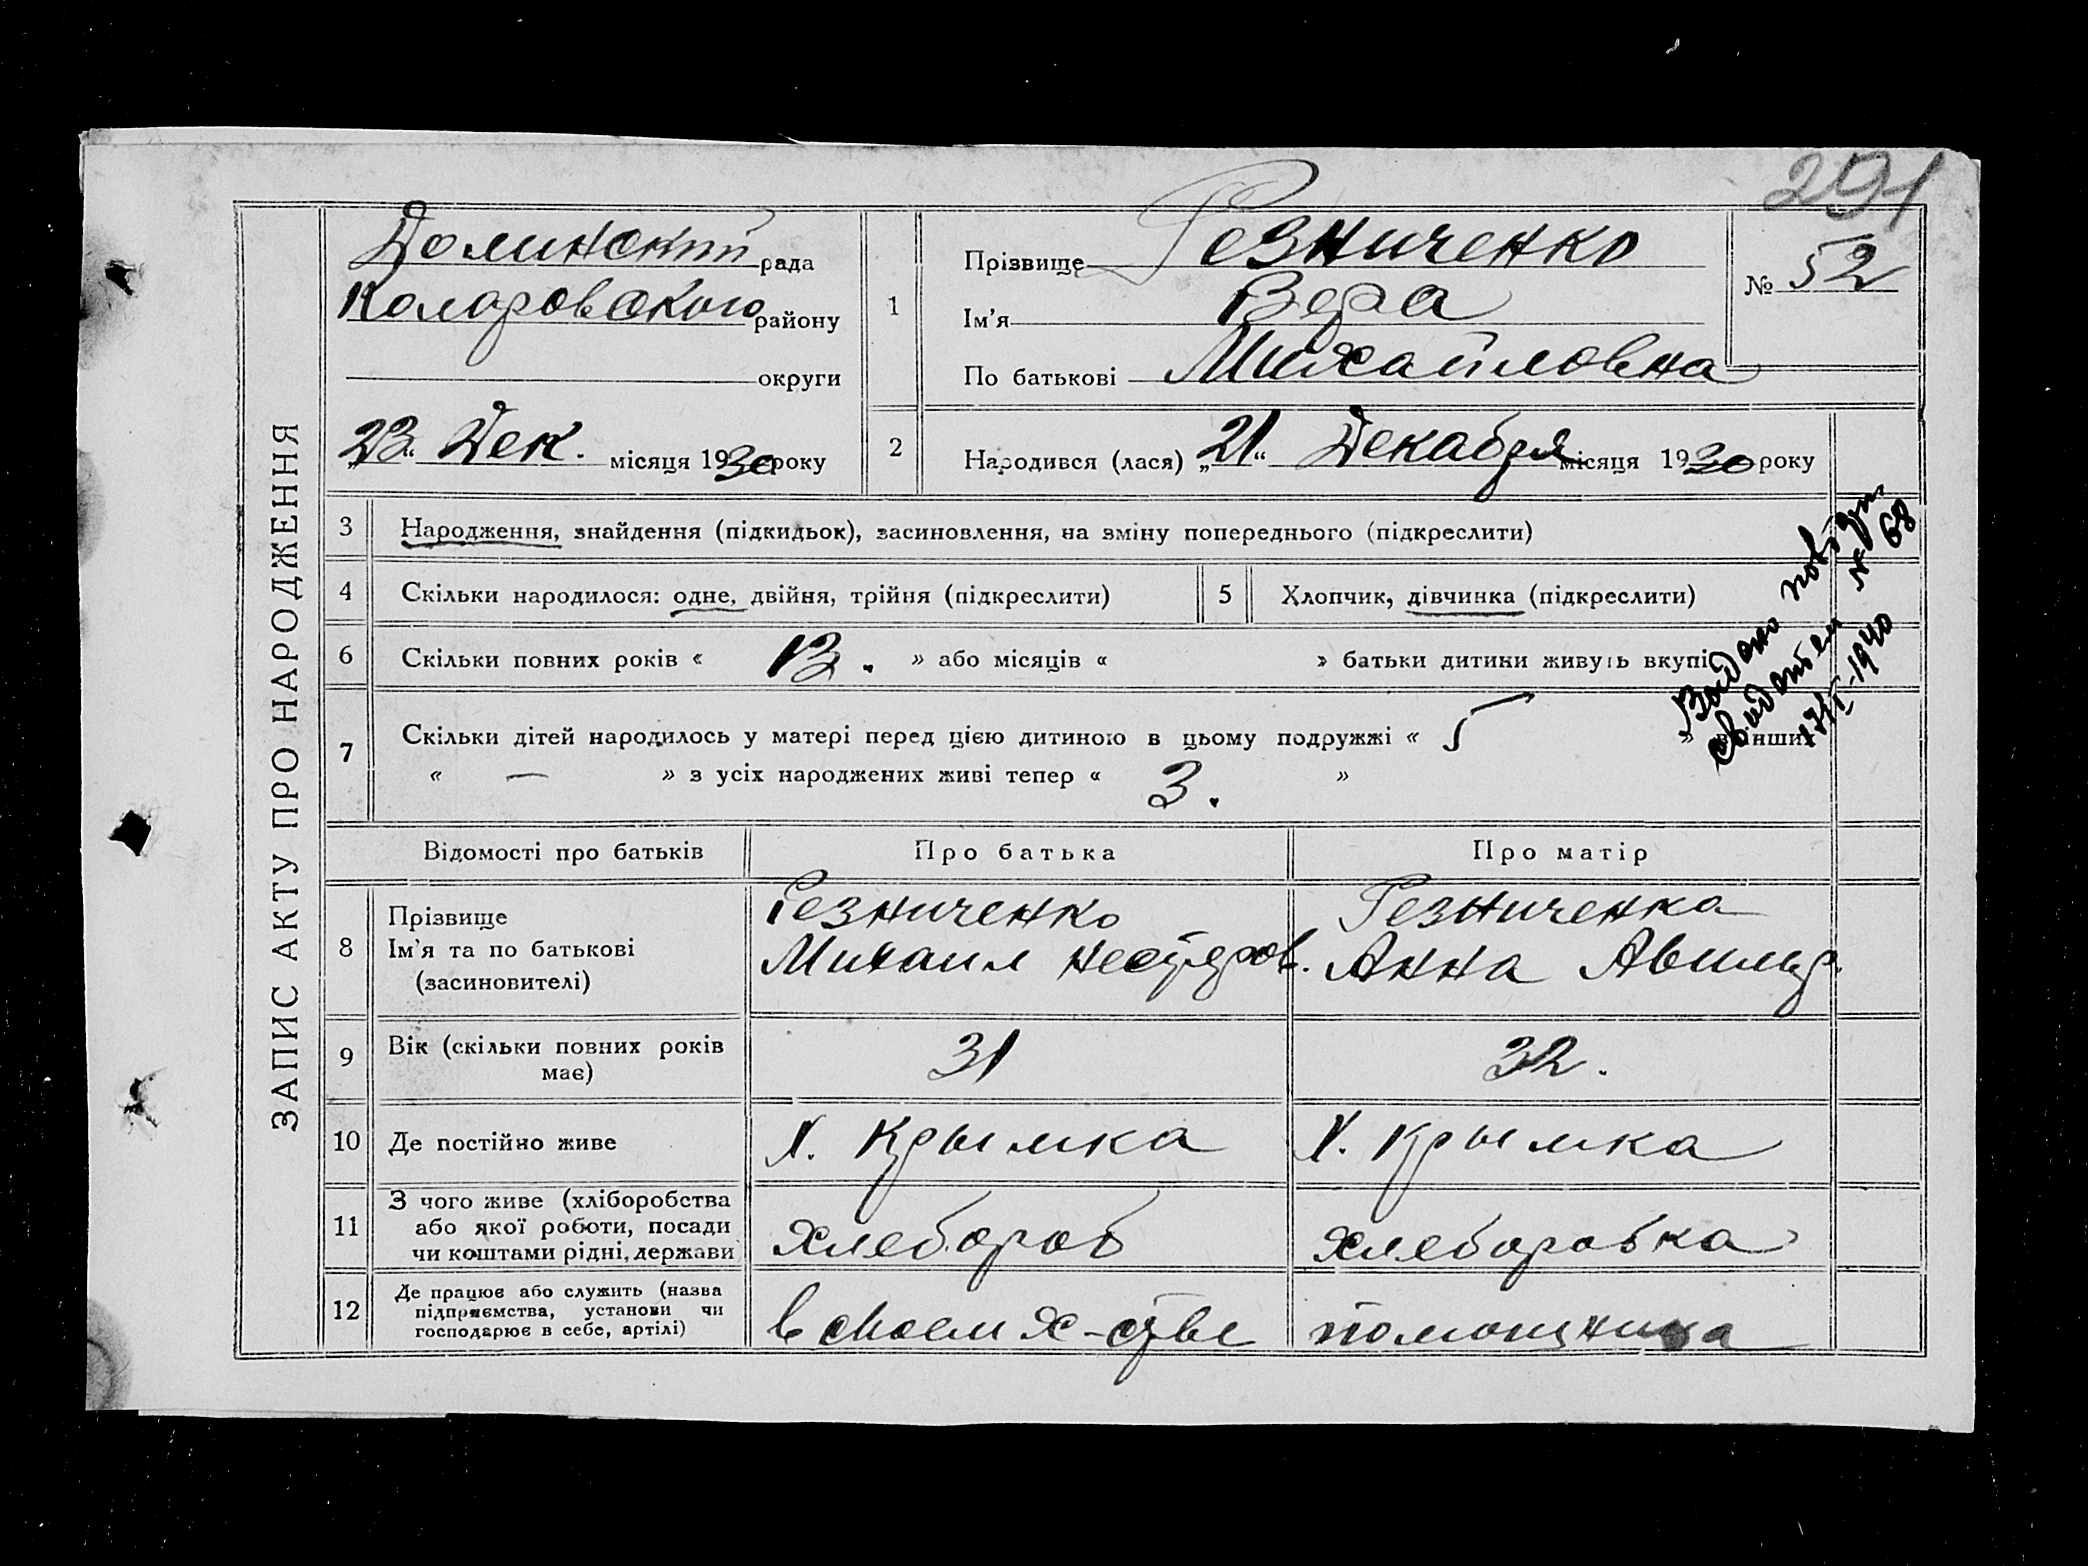 291
ЗАПИС АКТУ ПРО НАРОДЖЕННЯ
Долинский рада
Коларовского району
округи
23 " Дек. місяця 1930 року
1
Прізвище Резниченко
Ім'я Вера
По батькові Михайловна
№ 52
2
Народився (лася) „21“ Декабря місяця 1930 року
3 Народження, знайдення (підкидьок), засиновлення, на зміну попереднього (підкреслити)
4 Скільки народилося: одне, двійня, трійня (підкреслити)
5 Хлопчик, дівчинка (підкреслити)
6 Скільки повних років « 13. » або місяців « » батьки дитини живуть вкупі
7 Скільки дітей народилось у матері перед цією дитиною в цьому подружжі « 5 » в інших
« — » з усіх народжених живі тепер « 3. »
Видано
№ 68
17/I-1940
Відомості про батьків
Про батька
Про матір
8 Прізвище
Ім'я та по батькові
(засиновителі)
Резниченко
Михаил Нестеров.
Резниченка
Анна
9 Вік (скільки повних років
має)
31
32.
10 Де постійно живе
х. Крымка
х. Крымка
11 З чого живе (хліборобства
або якої роботи, посади
чи коштами рідні, держави
хлебороб
хлеборобка
12 Де працює або служить (назва
підприємства, установи чи
господарює в себе, артілі)
в своем х-стве
помощница